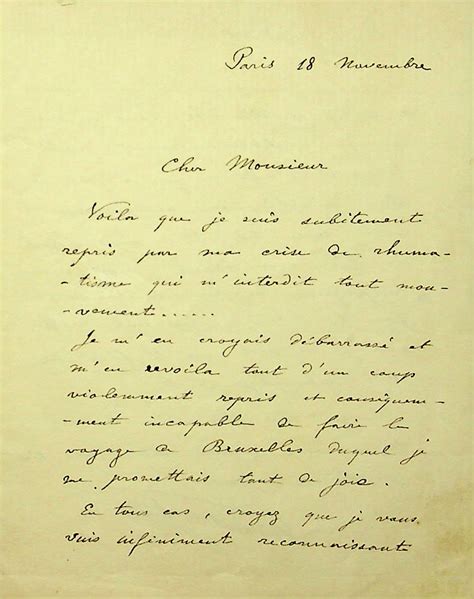 Paris 18 Novembre
Cher Monsieur
Voila que je suis subitement
repris par ma crise de rhuma-
-tisme qui m'interdit tout mou-
-vement......
Je m'en croyais débarrassé et
m'en revoila tout d'un coup
violemment repris et conséquem-
-ment incapable de faire le
voyage de Bruxelles duquel je
me promettais tant de joie.
En tous cas, croyez que je vous
suis infiniment reconnaissante